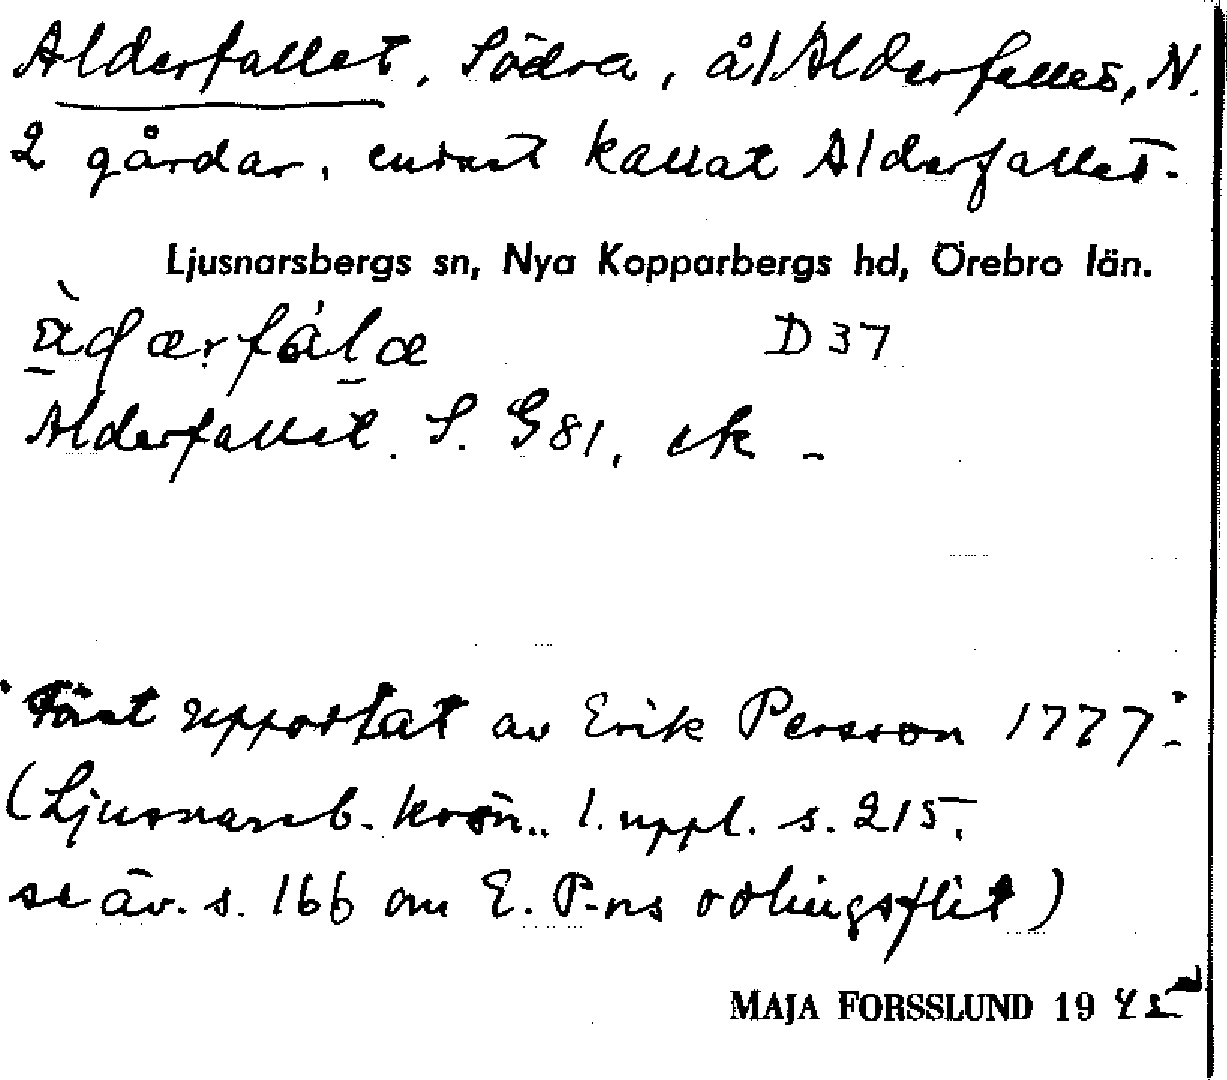 Alderfallet, Södra, ål Alderfallet, N.
2 gårdar, endast kallat Alderfallet.
Ljusnarsbergs sn, Nya Kopparbergs hd, Örebro län.
D 37
Alderfallet S. G 81, ek -
Först upptaget av Erik Persson 1777.
(Ljusnarsb. krön. 1. uppl. s. 215,
se äv. s. 166 om E. P-ns odlingsflit)
MAJA FORSSLUND 19 45